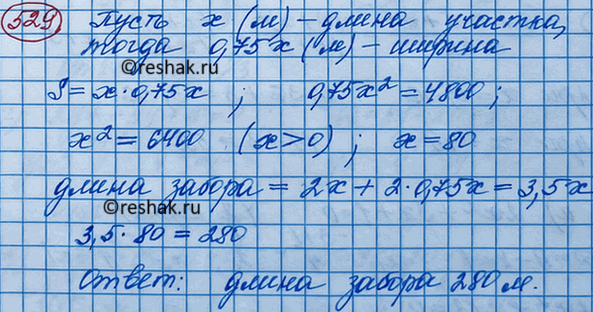 529 Пусть x (м) – длина участка,
тогда 0,75x (м) – ширина
©reshak.ru
S = x·0,75x ; 0,75x² = 4800 ;
x² = 6400 (x>0) ; x = 80
длина забора = 2x + 2·0,75x = 3,5x
©reshak.ru
3,5·80 = 280
Ответ: длина забора 280 м.